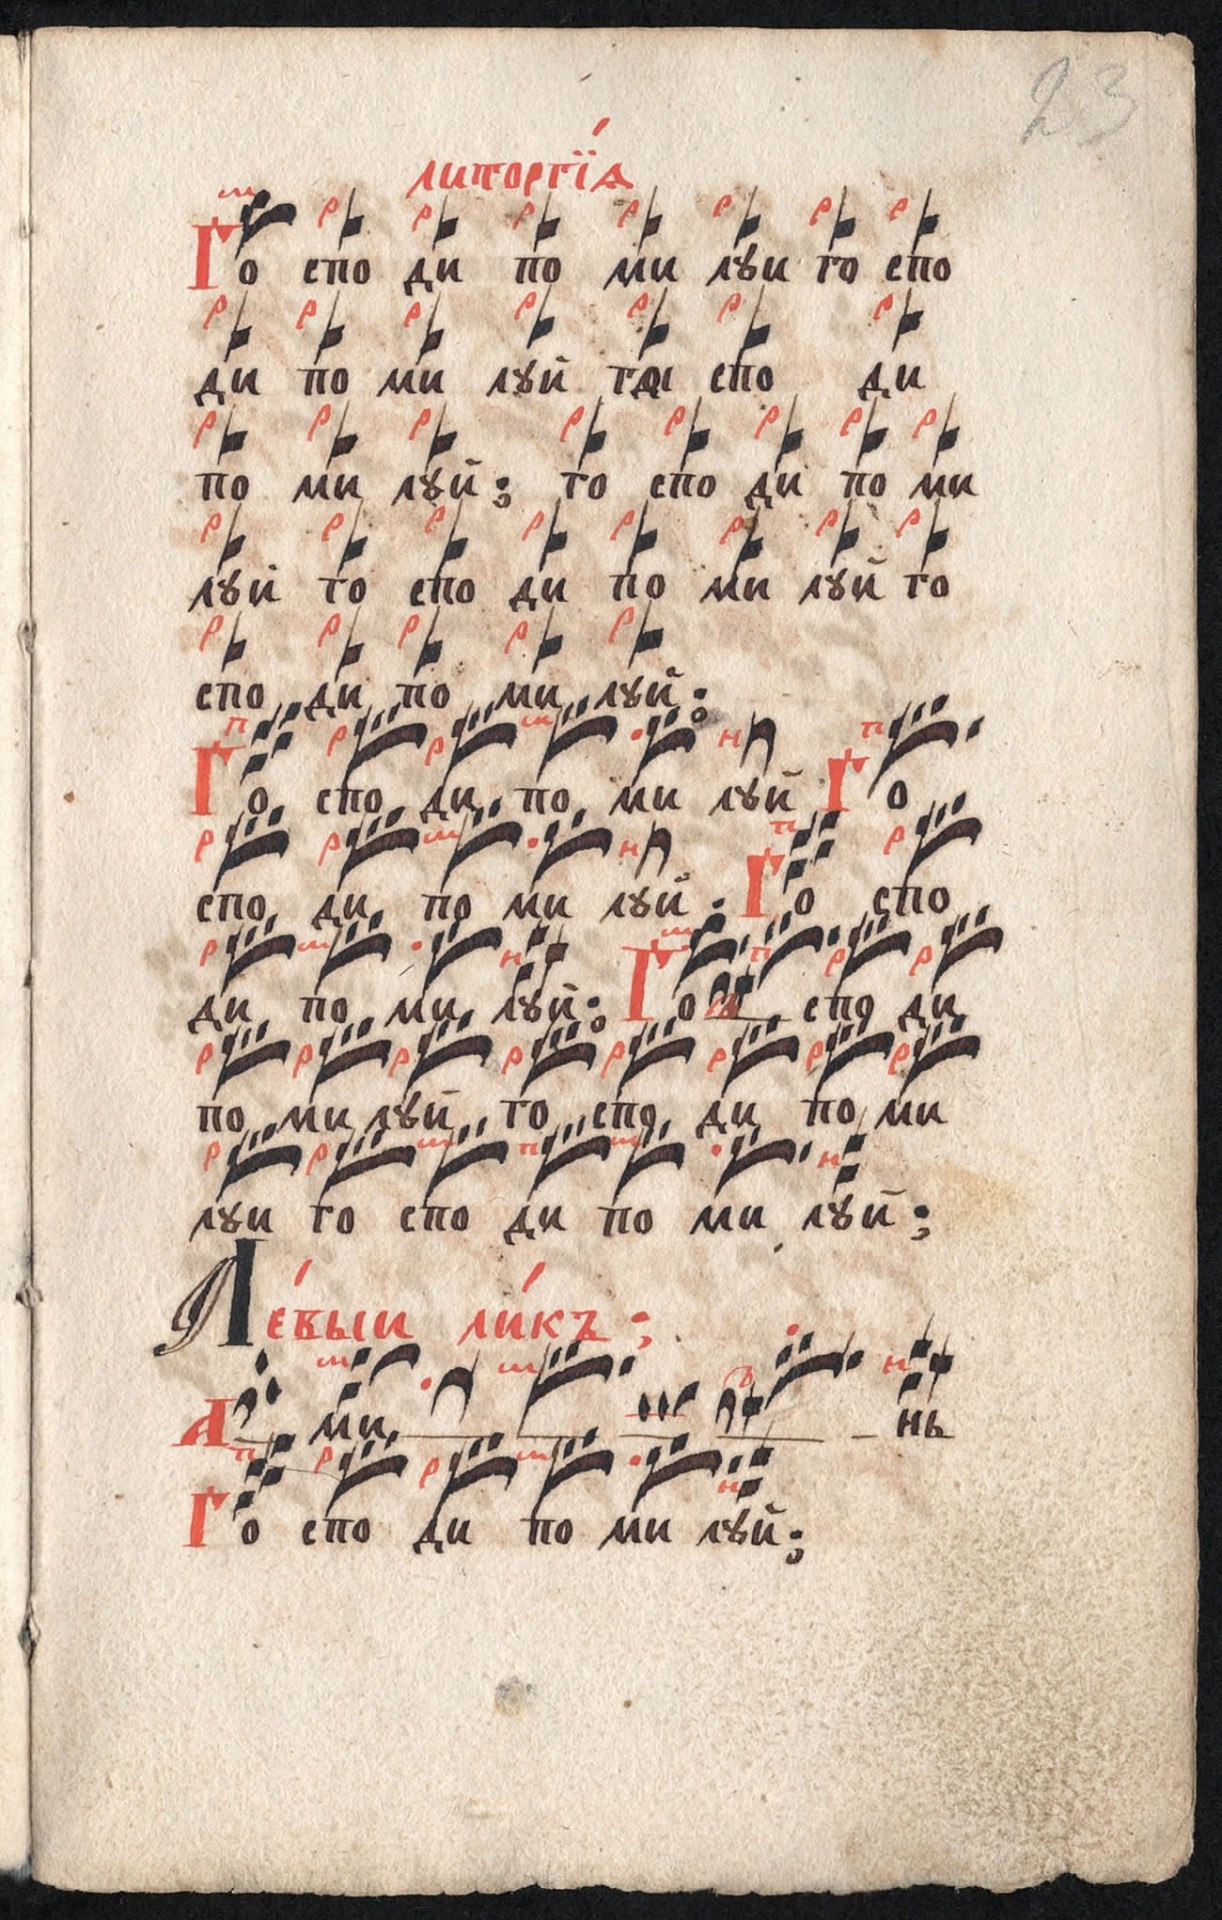 23
литоргїѧ
Го спо ди по ми лꙋи го спо
ди по ми лꙋй го спо ди
по ми лꙋй; го спо ди по ми
лꙋй го спо ди по ми лꙋй го
спо ди по ми лꙋй;
Го спо ди по ми лꙋй Го
спо ди по ми лꙋй. Го спо
ди по ми лꙋй: Го спо ди
по ми лꙋй го спо ди по ми
лꙋи го спо ди по ми лꙋй;
Ле́выи ли́къ;
А ми нь
Го спо ди по ми лꙋй;